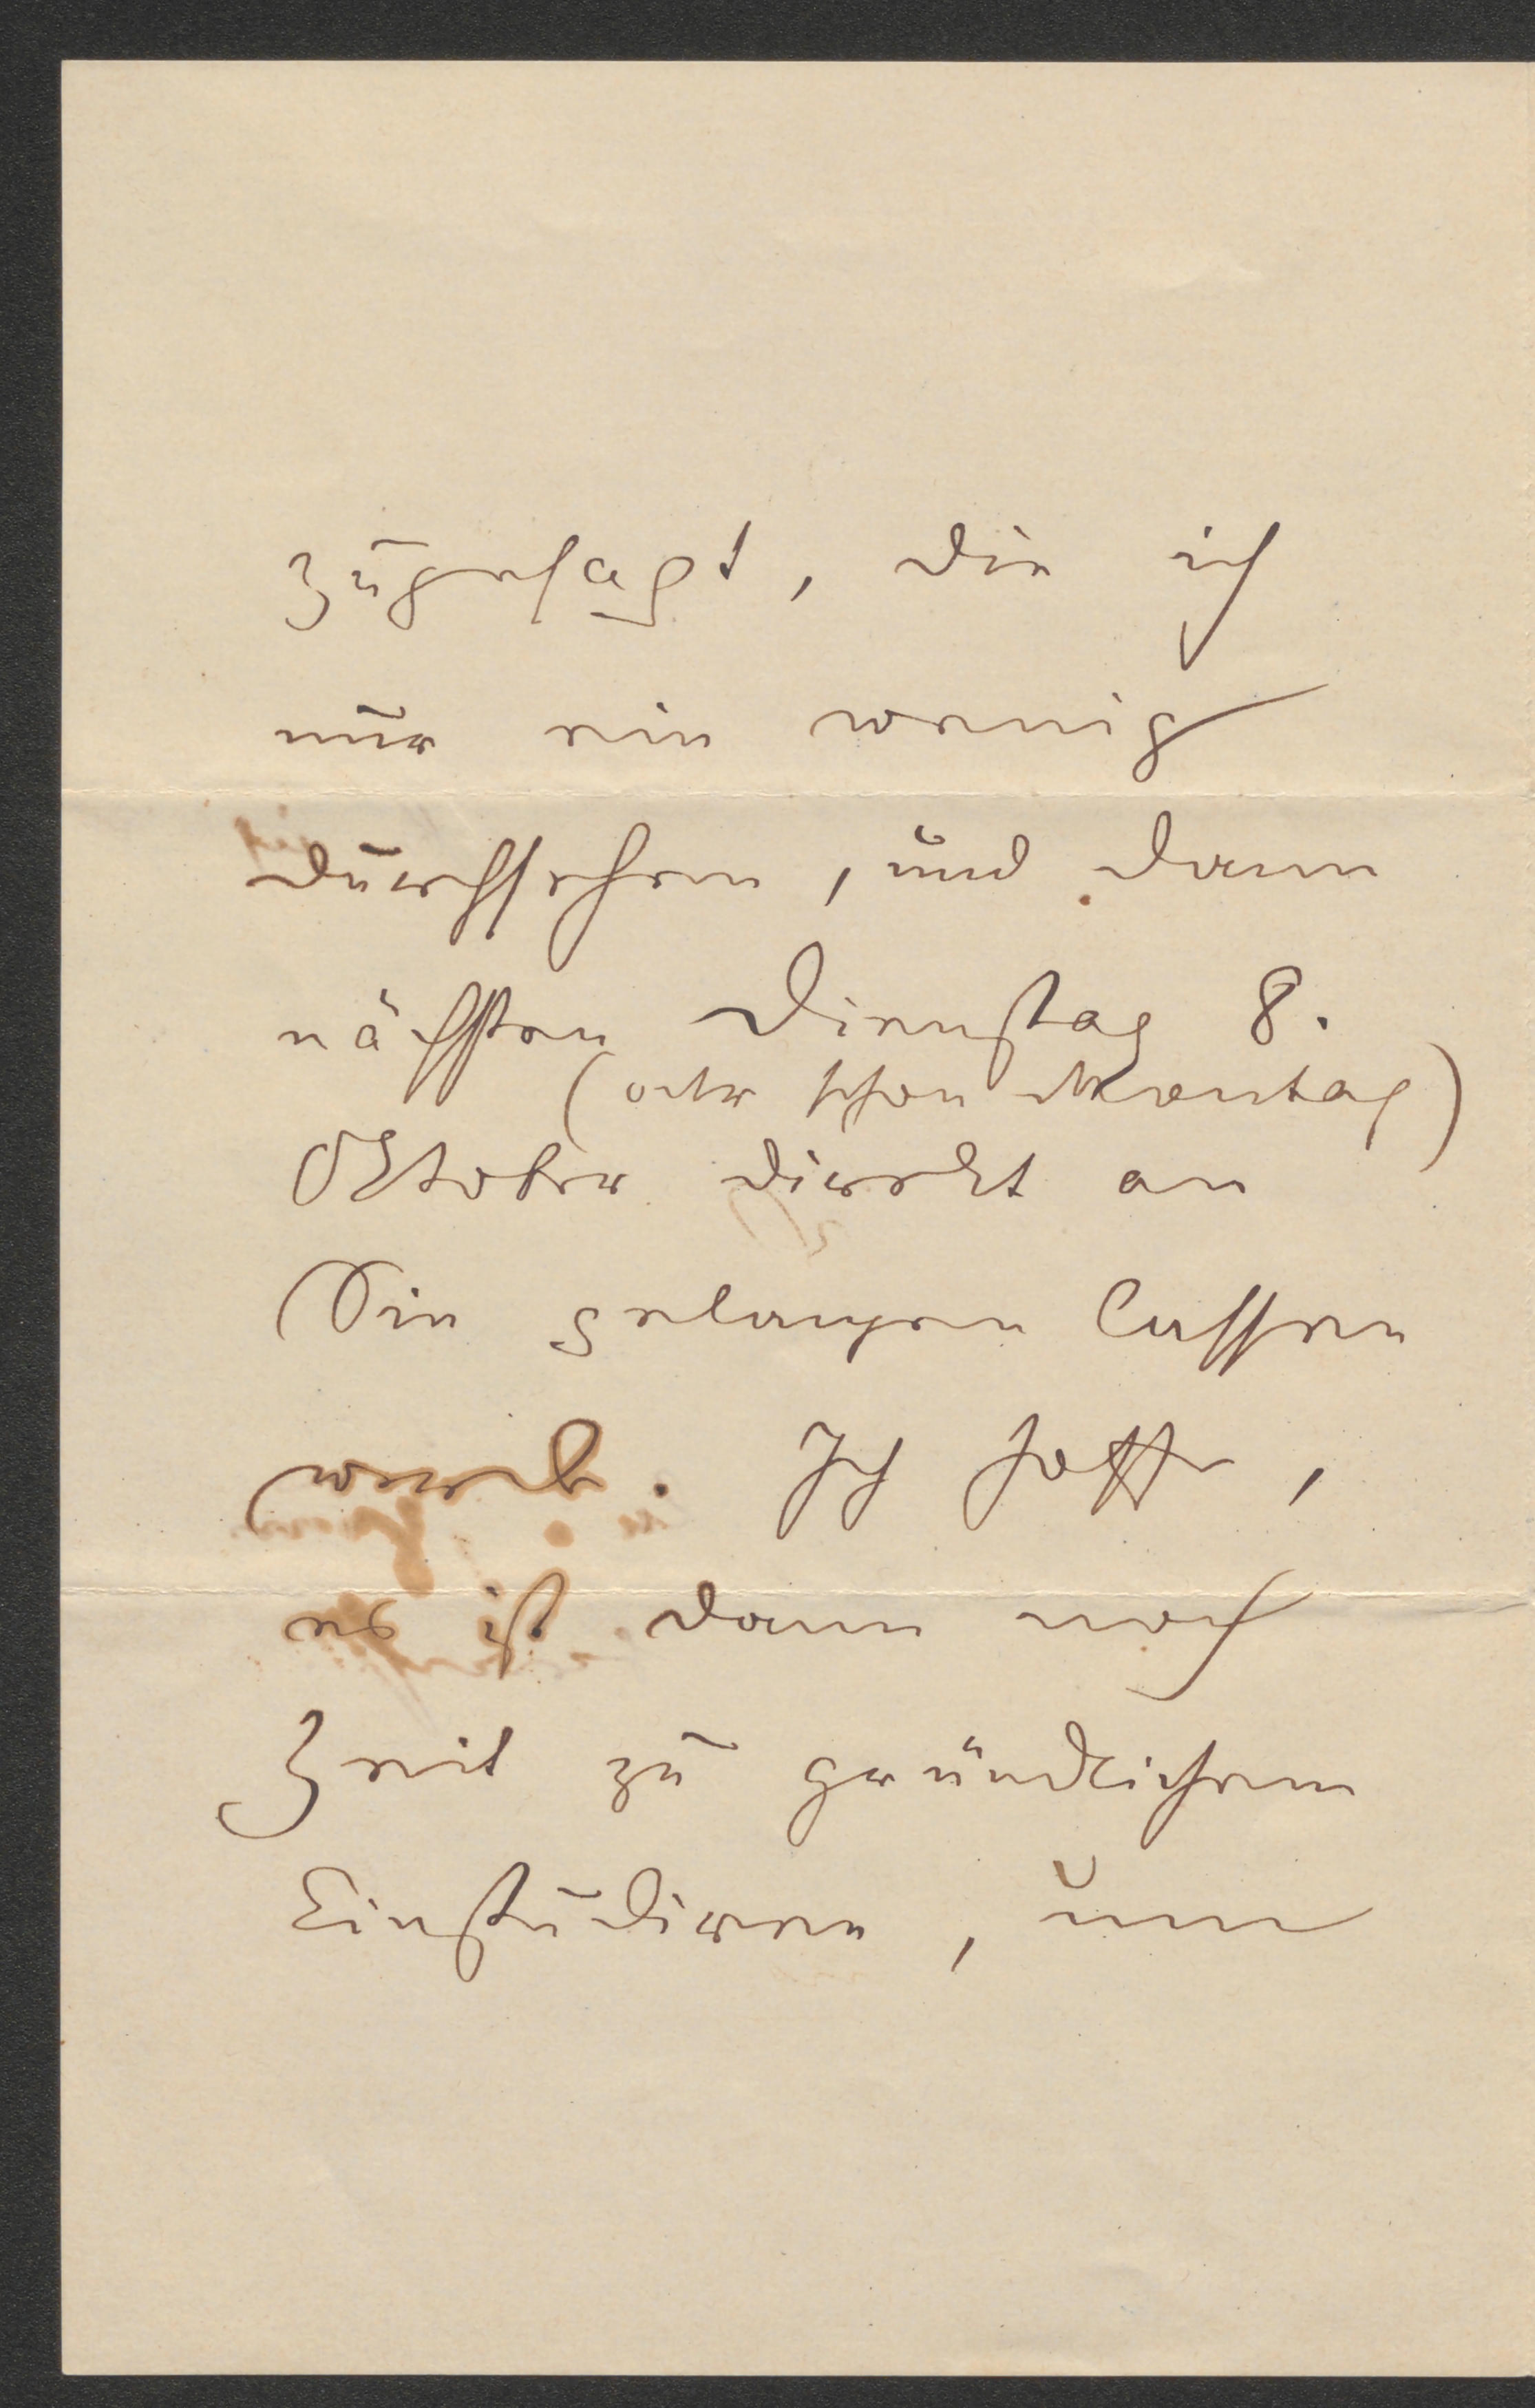 zugesagt, die ich
nur ein wenig
durchsehen, und dann
nächsten Dienstag 8.
(oder schon Montag)
Oktober direkt an
Sie gelangen lassen
werde. Ich hoffe,
es ist dann noch
Zeit zu gründlichem
Einstudiren, um